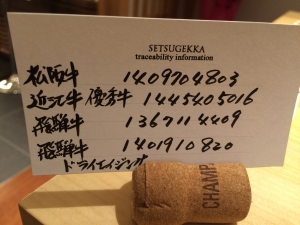 SETSUGEKKA
traceability information
松阪牛 1409704803
近江牛 優秀牛 1445405016
飛騨牛 1367114409
飛騨牛 1401910820
ドライエイジング
CHAMP